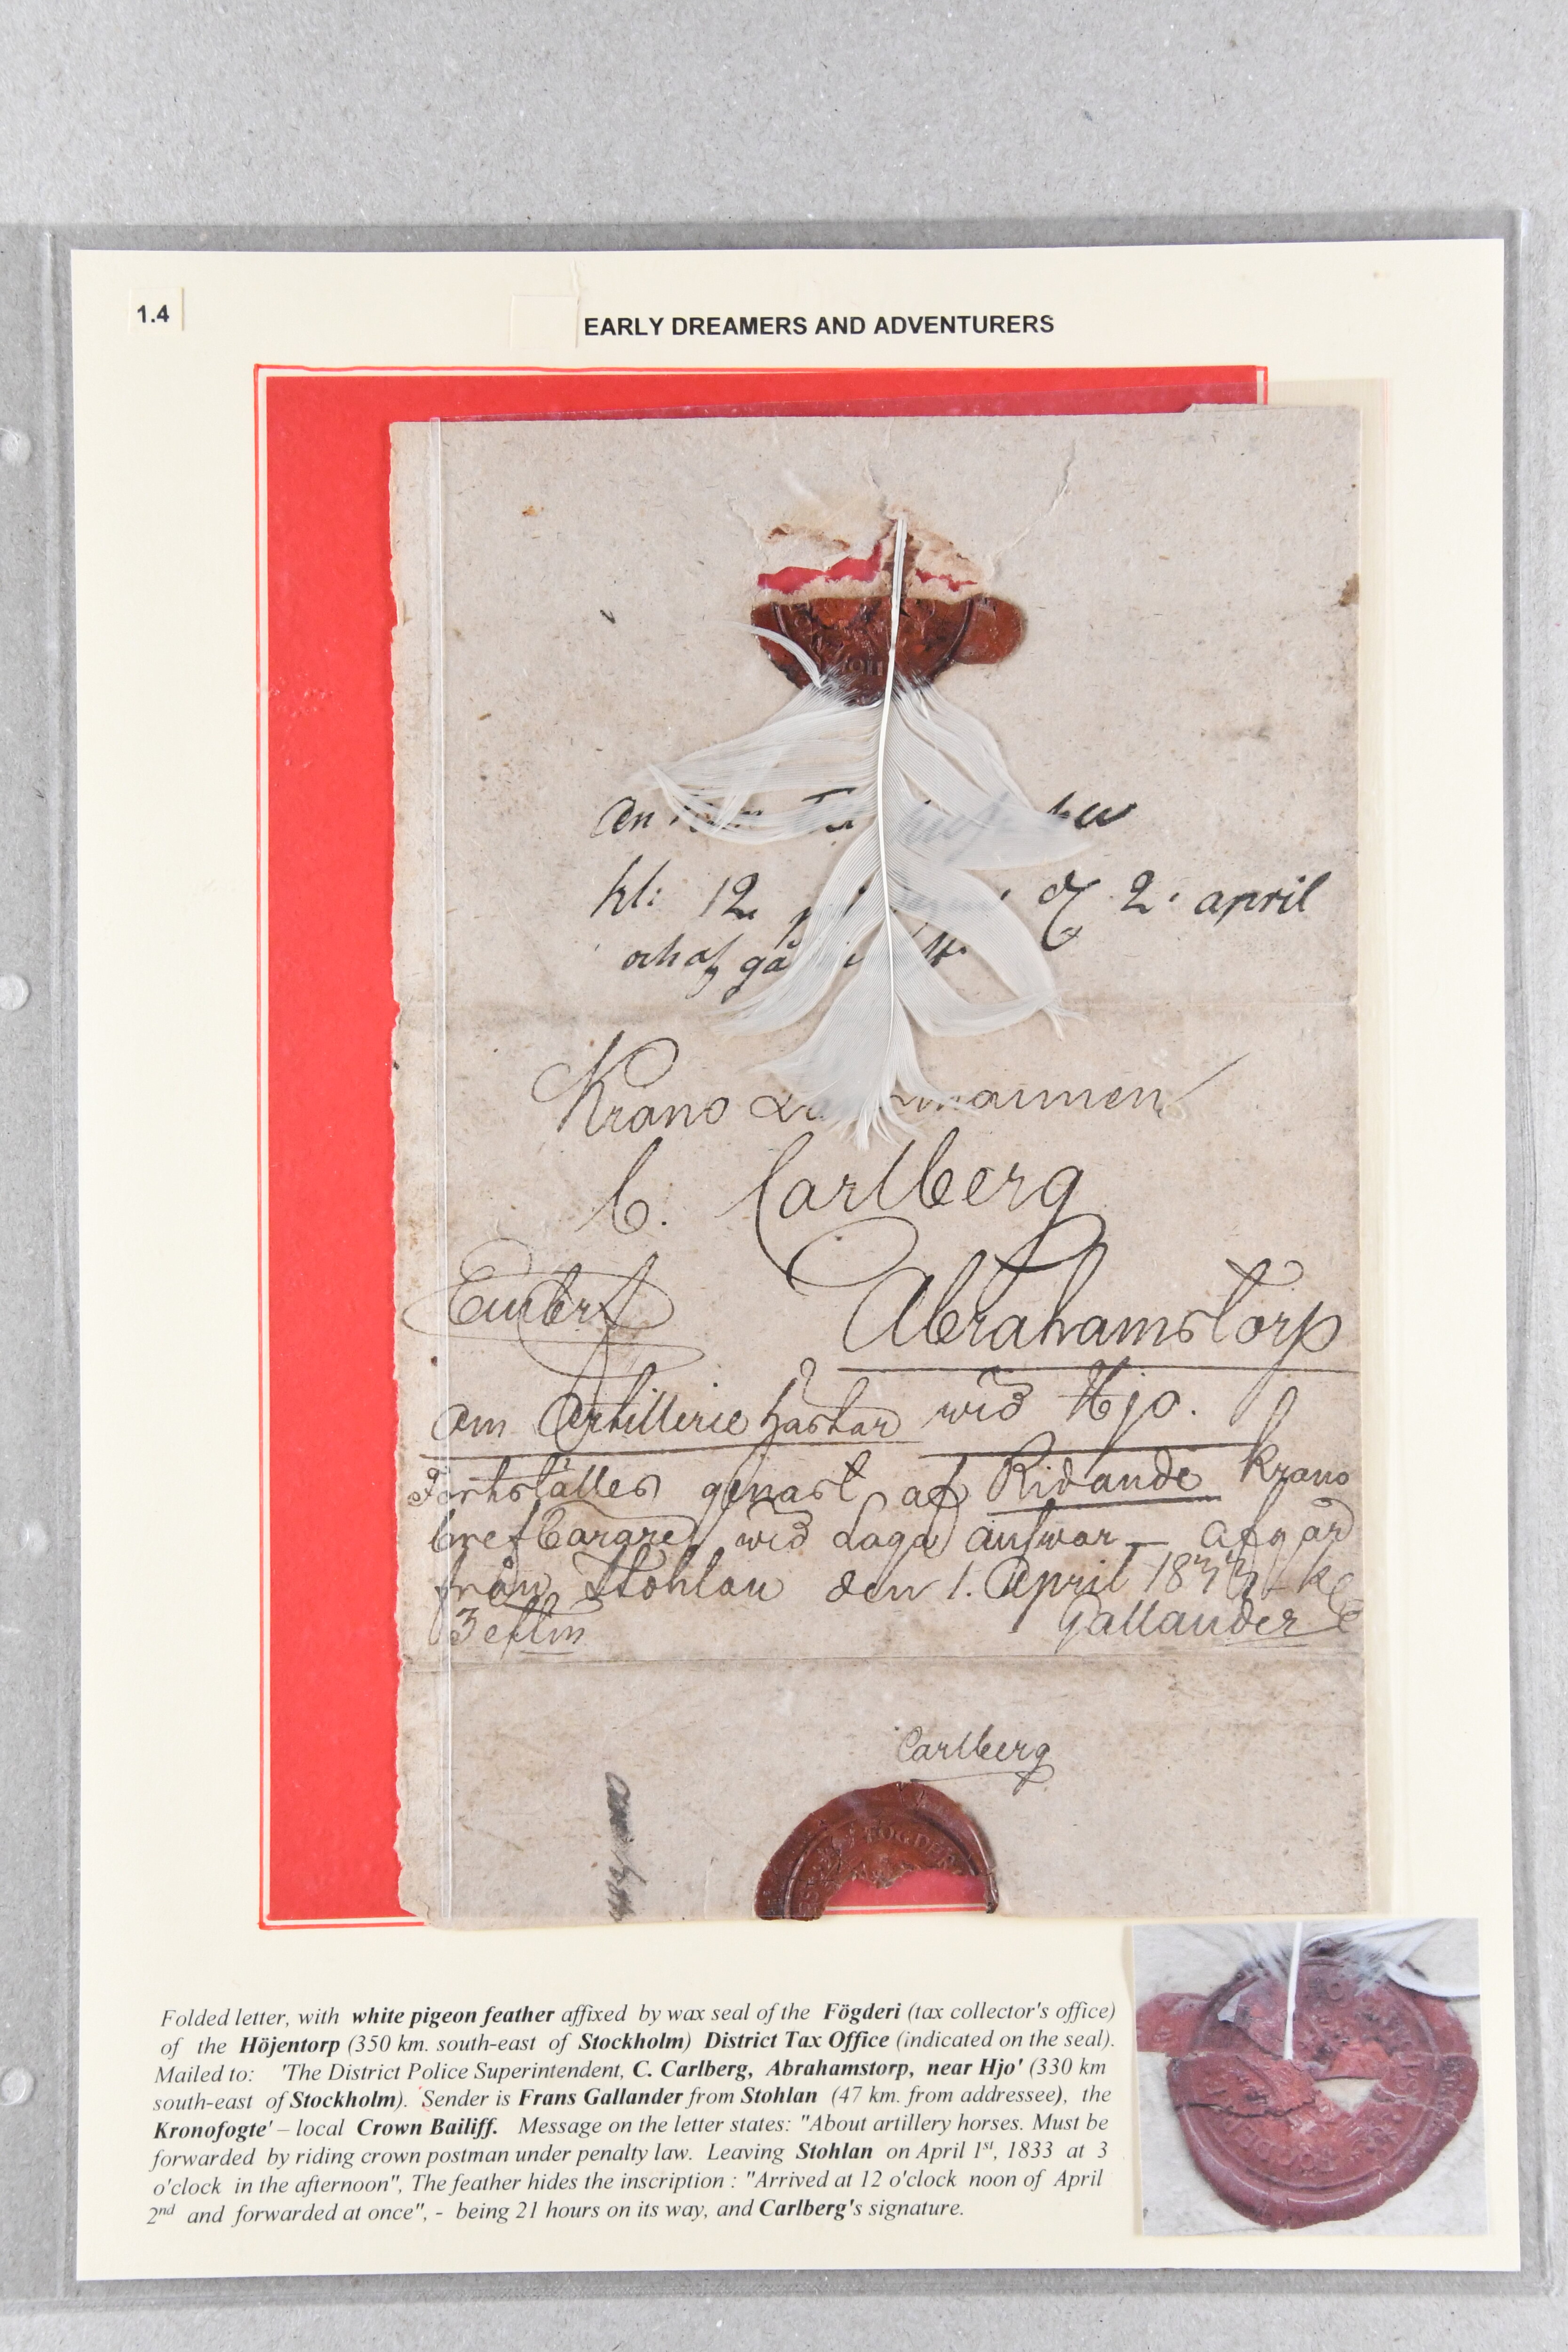 1.4
EARLY DREAMERS AND ADVENTURERS
kl: 12 2. april
och af gå
Krono
C. Carlberg
Abrahamstorp
om Artillerie hästar wid Hjo.
Forhställes genast af Ridande krono
bref bärare wid Laga answar – afgår
från Stohlan den 1. April 1833 – kl
3 eftm Gallander
Carlberg
FÖGDERI
Folded letter, with white pigeon feather affixed by wax seal of the Fögderi (tax collector's office)
of the Höjentorp (350 km. south-east of Stockholm) District Tax Office (indicated on the seal).
Mailed to: 'The District Police Superintendent, C. Carlberg, Abrahamstorp, near Hjo' (330 km
south-east of Stockholm). Sender is Frans Gallander from Stohlan (47 km. from addressee), the
Kronofogte' – local Crown Bailiff. Message on the letter states: "About artillery horses. Must be
forwarded by riding crown postman under penalty law. Leaving Stohlan on April 1st, 1833 at 3
o'clock in the afternoon", The feather hides the inscription : "Arrived at 12 o'clock noon of April
2nd and forwarded at once", - being 21 hours on its way, and Carlberg's signature.